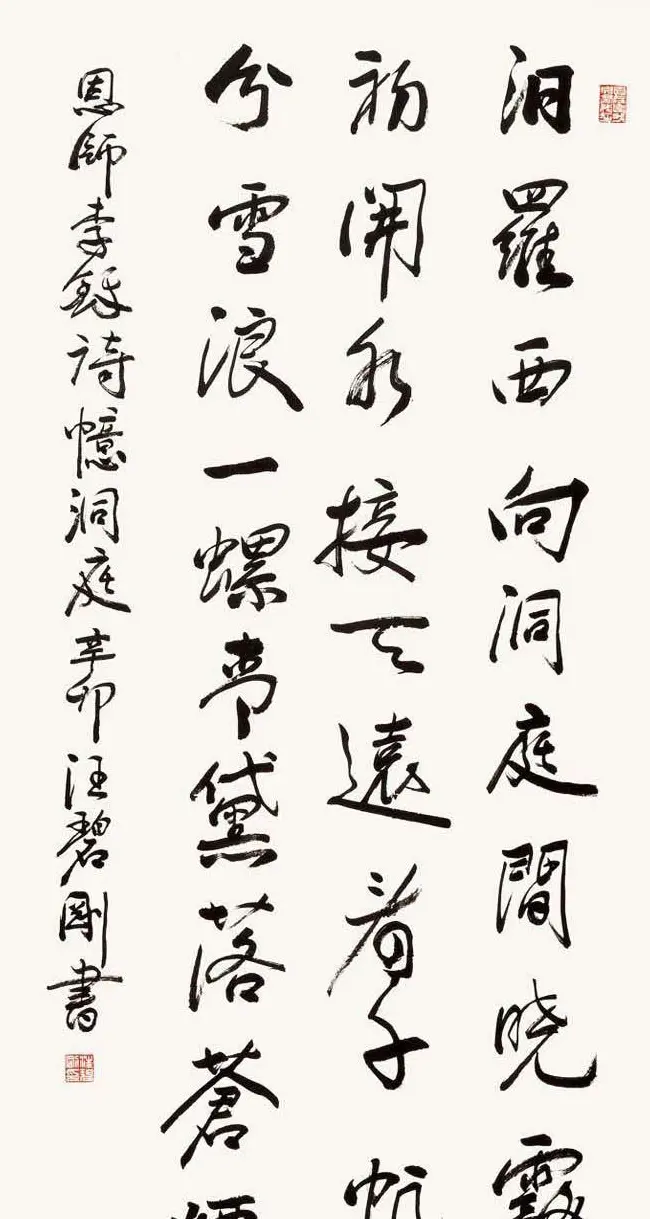 汨羅西向洞庭間曉霧
初開水接天遠看千帆
分雪浪一螺青黛落蒼煙
恩師李鐸詩憶洞庭辛卯汪碧剛書